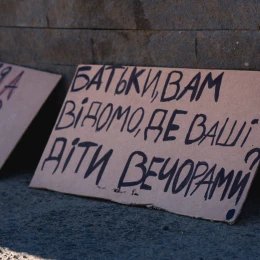 БАТЬКИ, ВАМ
ВІДОМО, ДЕ ВАШІ
ДІТИ ВЕЧОРАМИ?